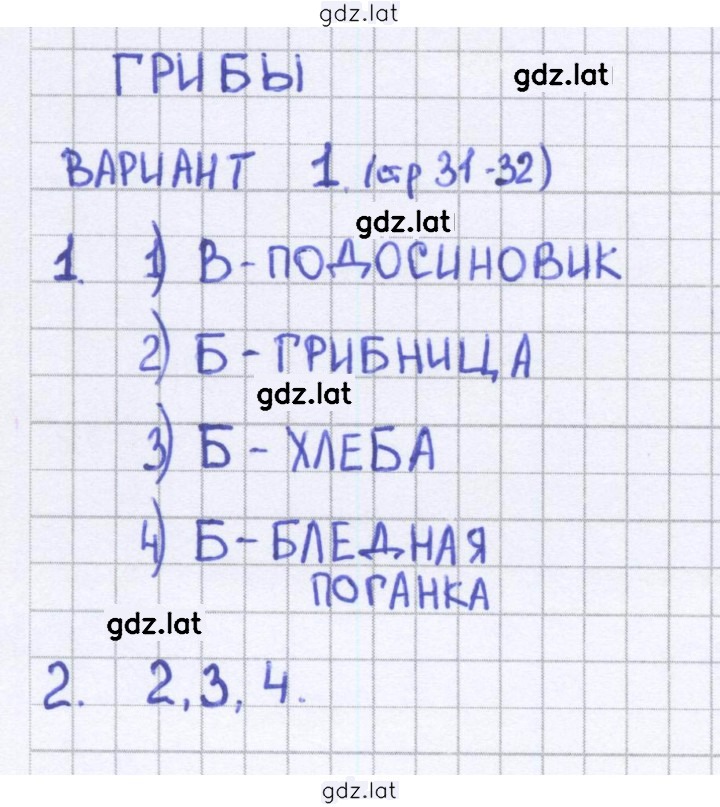 gdz.lat
ГРИБЫ
gdz.lat
ВАРИАНТ 1. (стр 31-32)
gdz.lat
1. 1) В - ПОДОСИНОВИК
2) Б - ГРИБНИЦА
gdz.lat
3) Б - ХЛЕБА
4) Б - БЛЕДНАЯ
ПОГАНКА
gdz.lat
2. 2, 3, 4.
gdz.lat